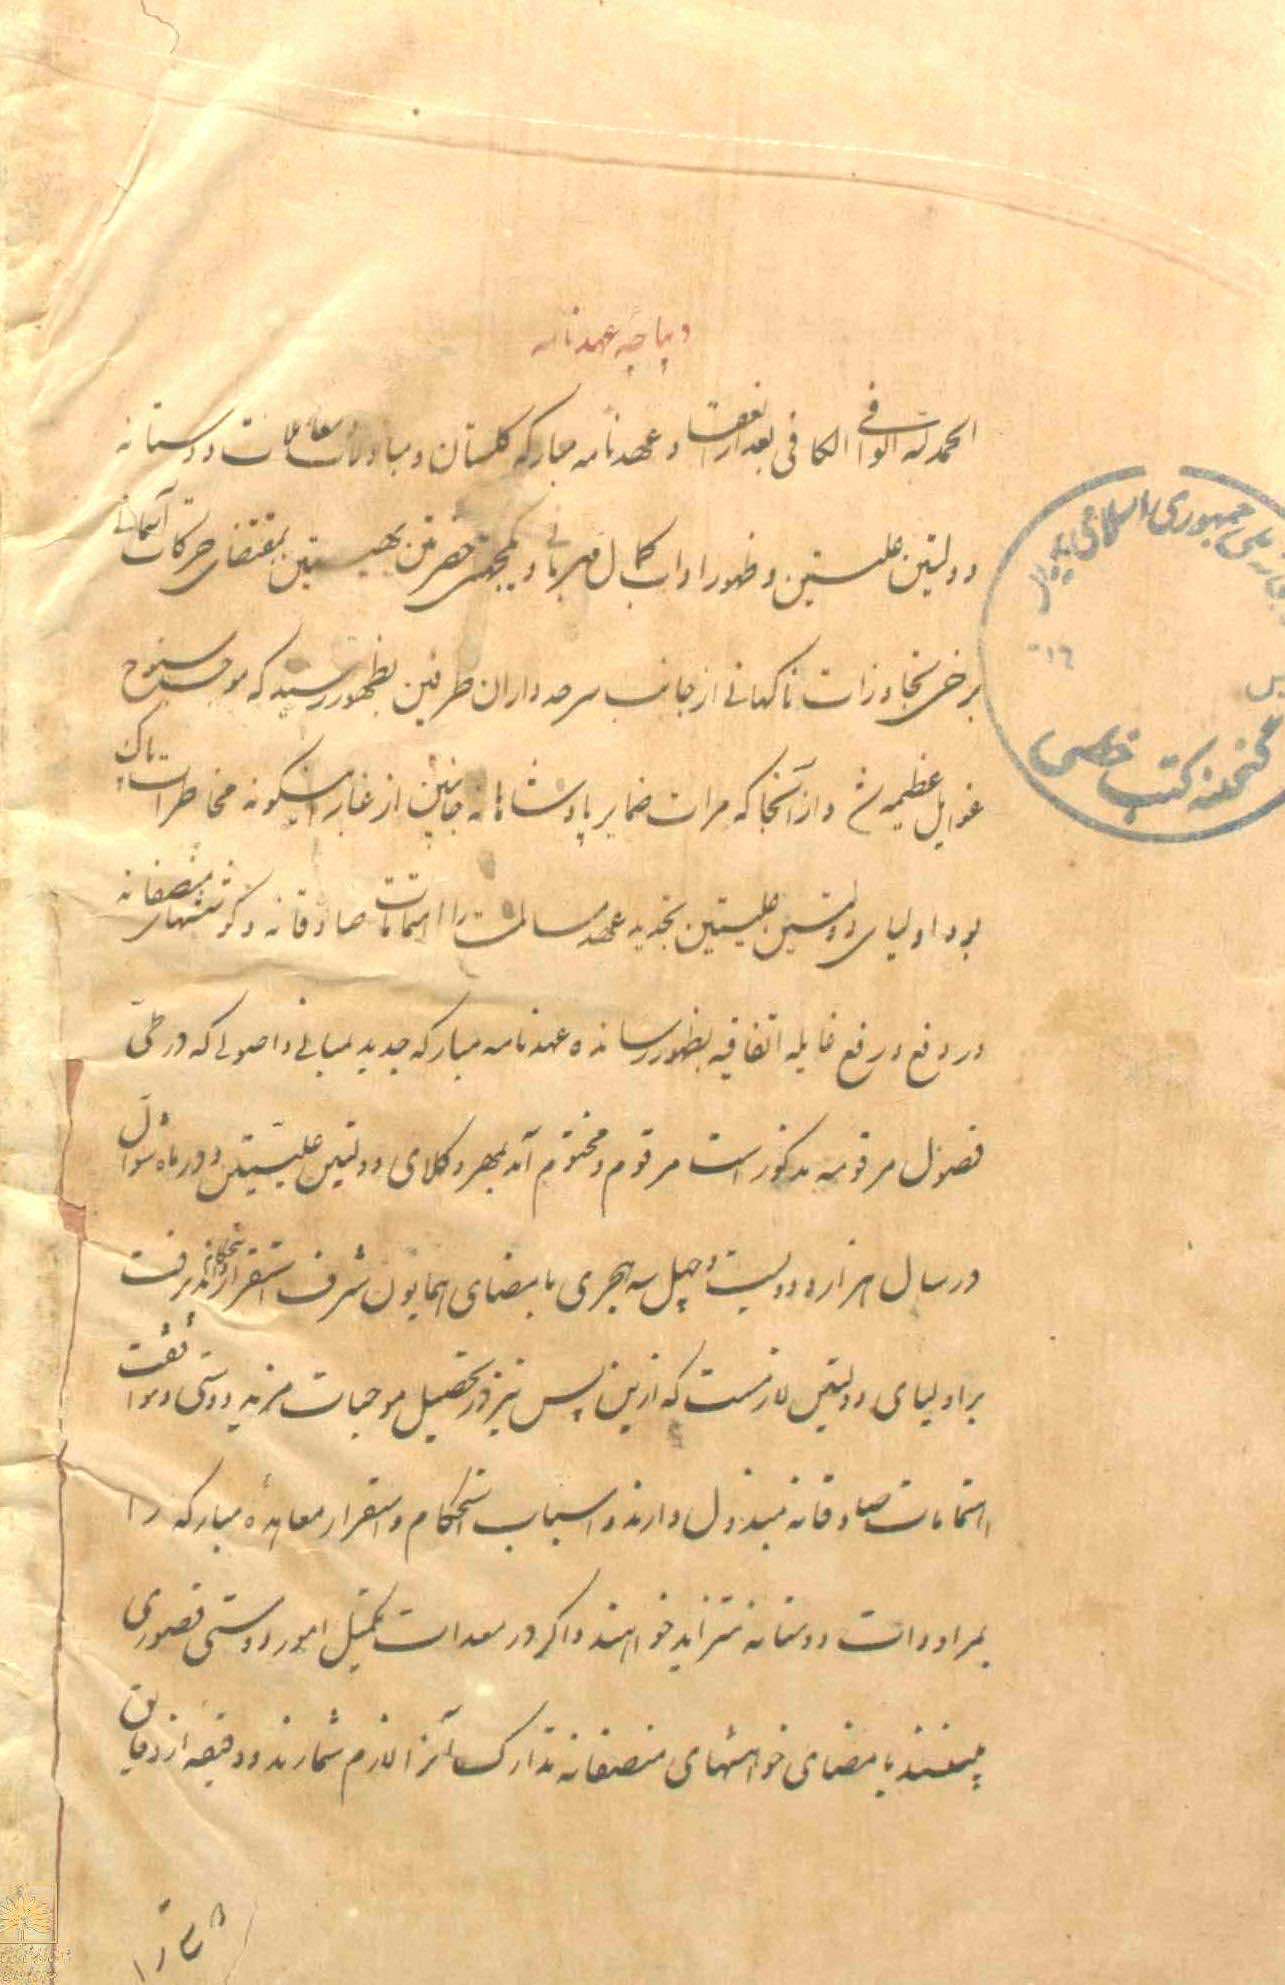 دیباچه عهدنامه
الحمدلله الوافی الکافی بعد از انعقاد عهدنامه مبارکه گلستان و مبادلات معاملات دوستانه
دولتین علیتین و ظهور اداب کمال مهربانی و یکجهتی حضرتین بهیتین بمقتضای حرکات آسمانی
برخی تجاوزات ناگهانی از جانب سرحدداران طرفین بظهور رسید که موجب سنوح
غوایل عظیمه شد و از آنجا که مرات ضمایر پادشاهانه جانبین از غبار اینگونه مخاطرات پاک
بود اولیای دولتین علیتین تجدید عهد مسالمت را اهتمامات صادقانه و کوششهای منصفانه
در دفع و رفع غایله اتفاقیه بظهور رسانده عهدنامه مبارکه جدید بمبانی و اصولی که در طیّ
فصول مرقومه مذکور است مرقوم و مختوم آمد بمهر وکلای دولتین علیتین و در ماه شوال
در سال هزار و دویست و چهل سه هجری بامضای همایون شرف استقرار و استحکام پذیرفت
بر اولیای دولتین لازمست که ازین پس نیز در تحصیل موجبات مزید دوستی و موافقت
اهتمامات صادقانه مبذول دارند و اسباب استحکام و استقرار معاهدهٔ مبارکه را
بمراودات دوستانه متزاید خواهند و اگر در معدات تکمیل امور دوستی قصوری
بینند بامضای خواهشهای منصفانه تدارک آنرا لازم شمارند و دقیقه از دقایق
جمهوری اسلامی ایران
گنجینه کتب خطی